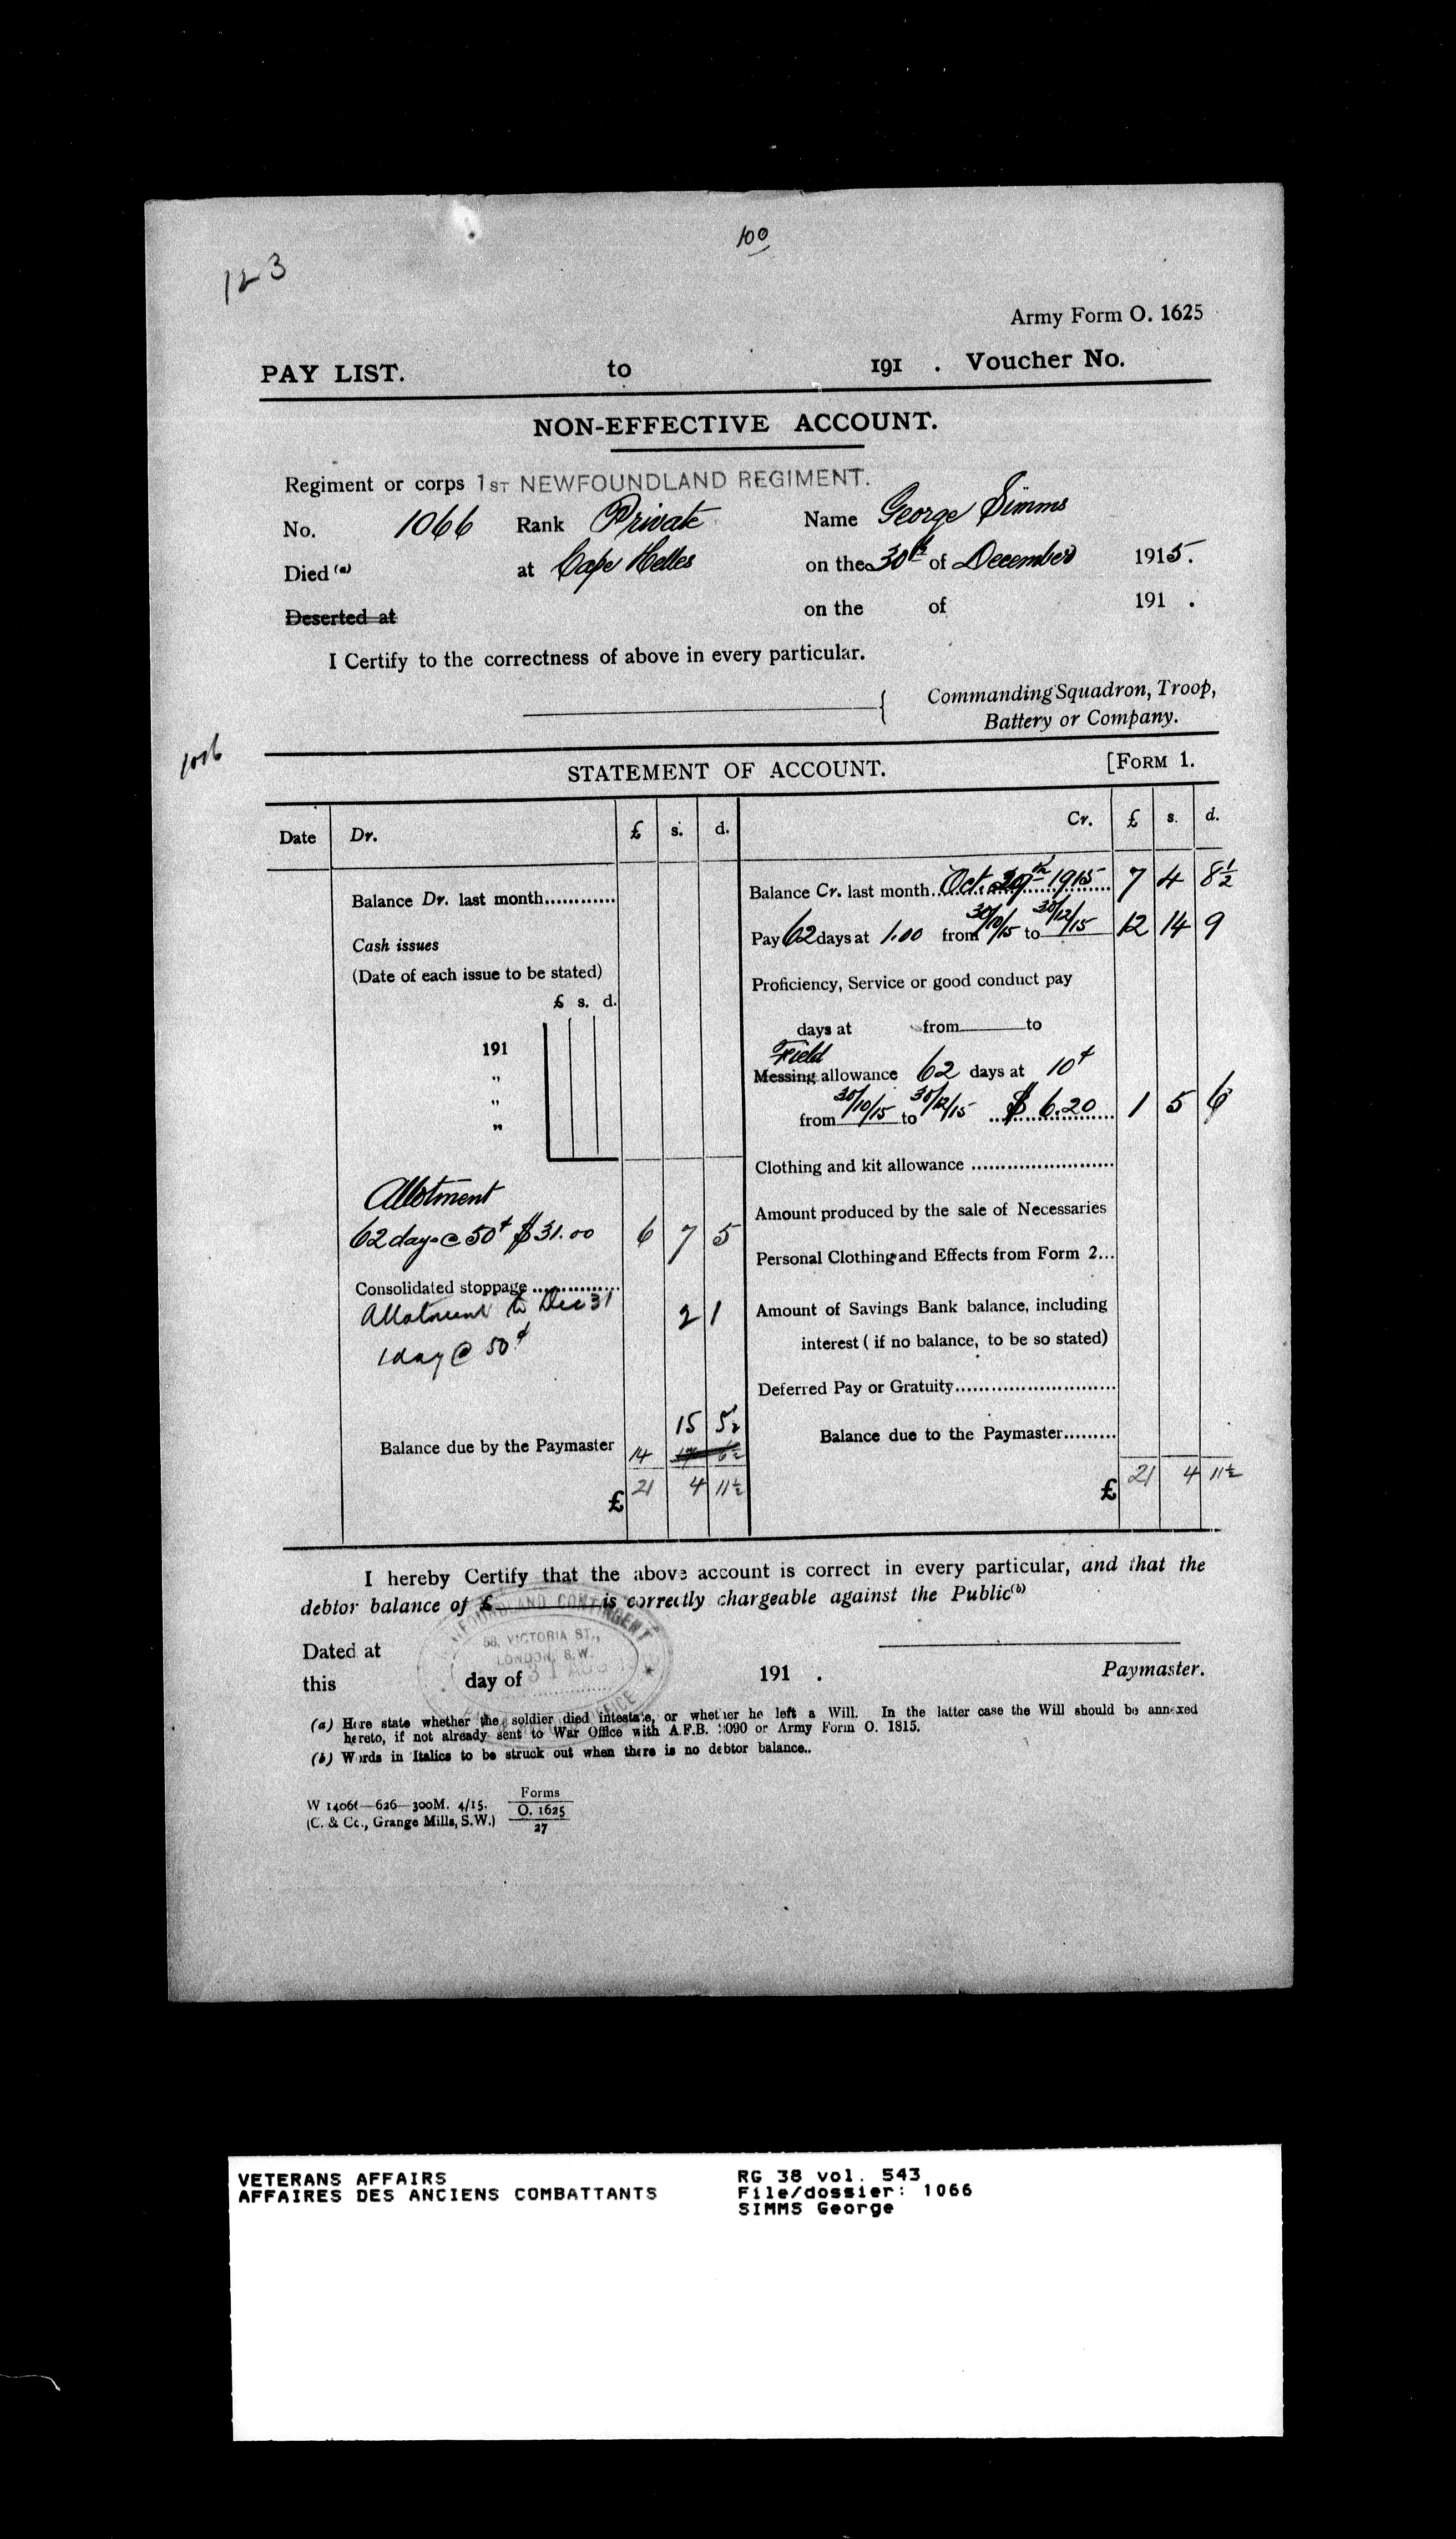 100
123
Army Form O. 1625
PAY LIST. to 191 . Voucher No.
NON-EFFECTIVE ACCOUNT.
Regiment or corps 1ST NEWFOUNDLAND REGIMENT.
No. 1066 Rank Private Name George Simms
Died (a) at Cape Helles on the 30th of December 1915.
Deserted at on the of 191 .
I Certify to the correctness of above in every particular.
Commanding Squadron, Troop,
Battery or Company.
STATEMENT OF ACCOUNT. [FORM 1.
Date Dr. £ s. d.
Balance Dr. last month............
Cash issues
(Date of each issue to be stated)
£ s. d.
191
"
"
"
Allotment
62 days @ 50¢ $31.00 6 7 5
Consolidated stoppage ...............
Allotment to Dec 31 2 1
1 day @ 50¢
15 5½
Balance due by the Paymaster 14
£ 21 4 11½
Cr. £ s. d.
Balance Cr. last month Oct. 29th 1915 7 4 8½
Pay 62 days at 1.00 from 30/10/15 to 30/12/15 12 14 9
Proficiency, Service or good conduct pay
days at from to
Field
Messing allowance 62 days at 10¢
from 30/10/15 to 30/12/15 $ 6.20 1 5 6
Clothing and kit allowance ........................
Amount produced by the sale of Necessaries
Personal Clothing and Effects from Form 2...
Amount of Savings Bank balance, including
interest ( if no balance, to be so stated)
Deferred Pay or Gratuity...........................
Balance due to the Paymaster.........
£ 21 4 11½
I hereby Certify that the above account is correct in every particular, and that the
debtor balance of £ is correctly chargeable against the Public(b)
NEWFOUNDLAND CONTINGENT
58, VICTORIA ST.,
LONDON, S.W.
31 AUG
Dated at
this day of 191 . Paymaster.
(a) Here state whether the soldier died intestate, or whether he left a Will. In the latter case the Will should be annexed
hereto, if not already sent to War Office with A.F.B. 2090 or Army Form O. 1815.
(b) Words in Italics to be struck out when there is no debtor balance..
W 14066—626—300M. 4/15. Forms
(C. & Co., Grange Mills, S.W.) O. 1625
27
VETERANS AFFAIRS
AFFAIRES DES ANCIENS COMBATTANTS
RG 38 vol. 543
File/dossier: 1066
SIMMS George